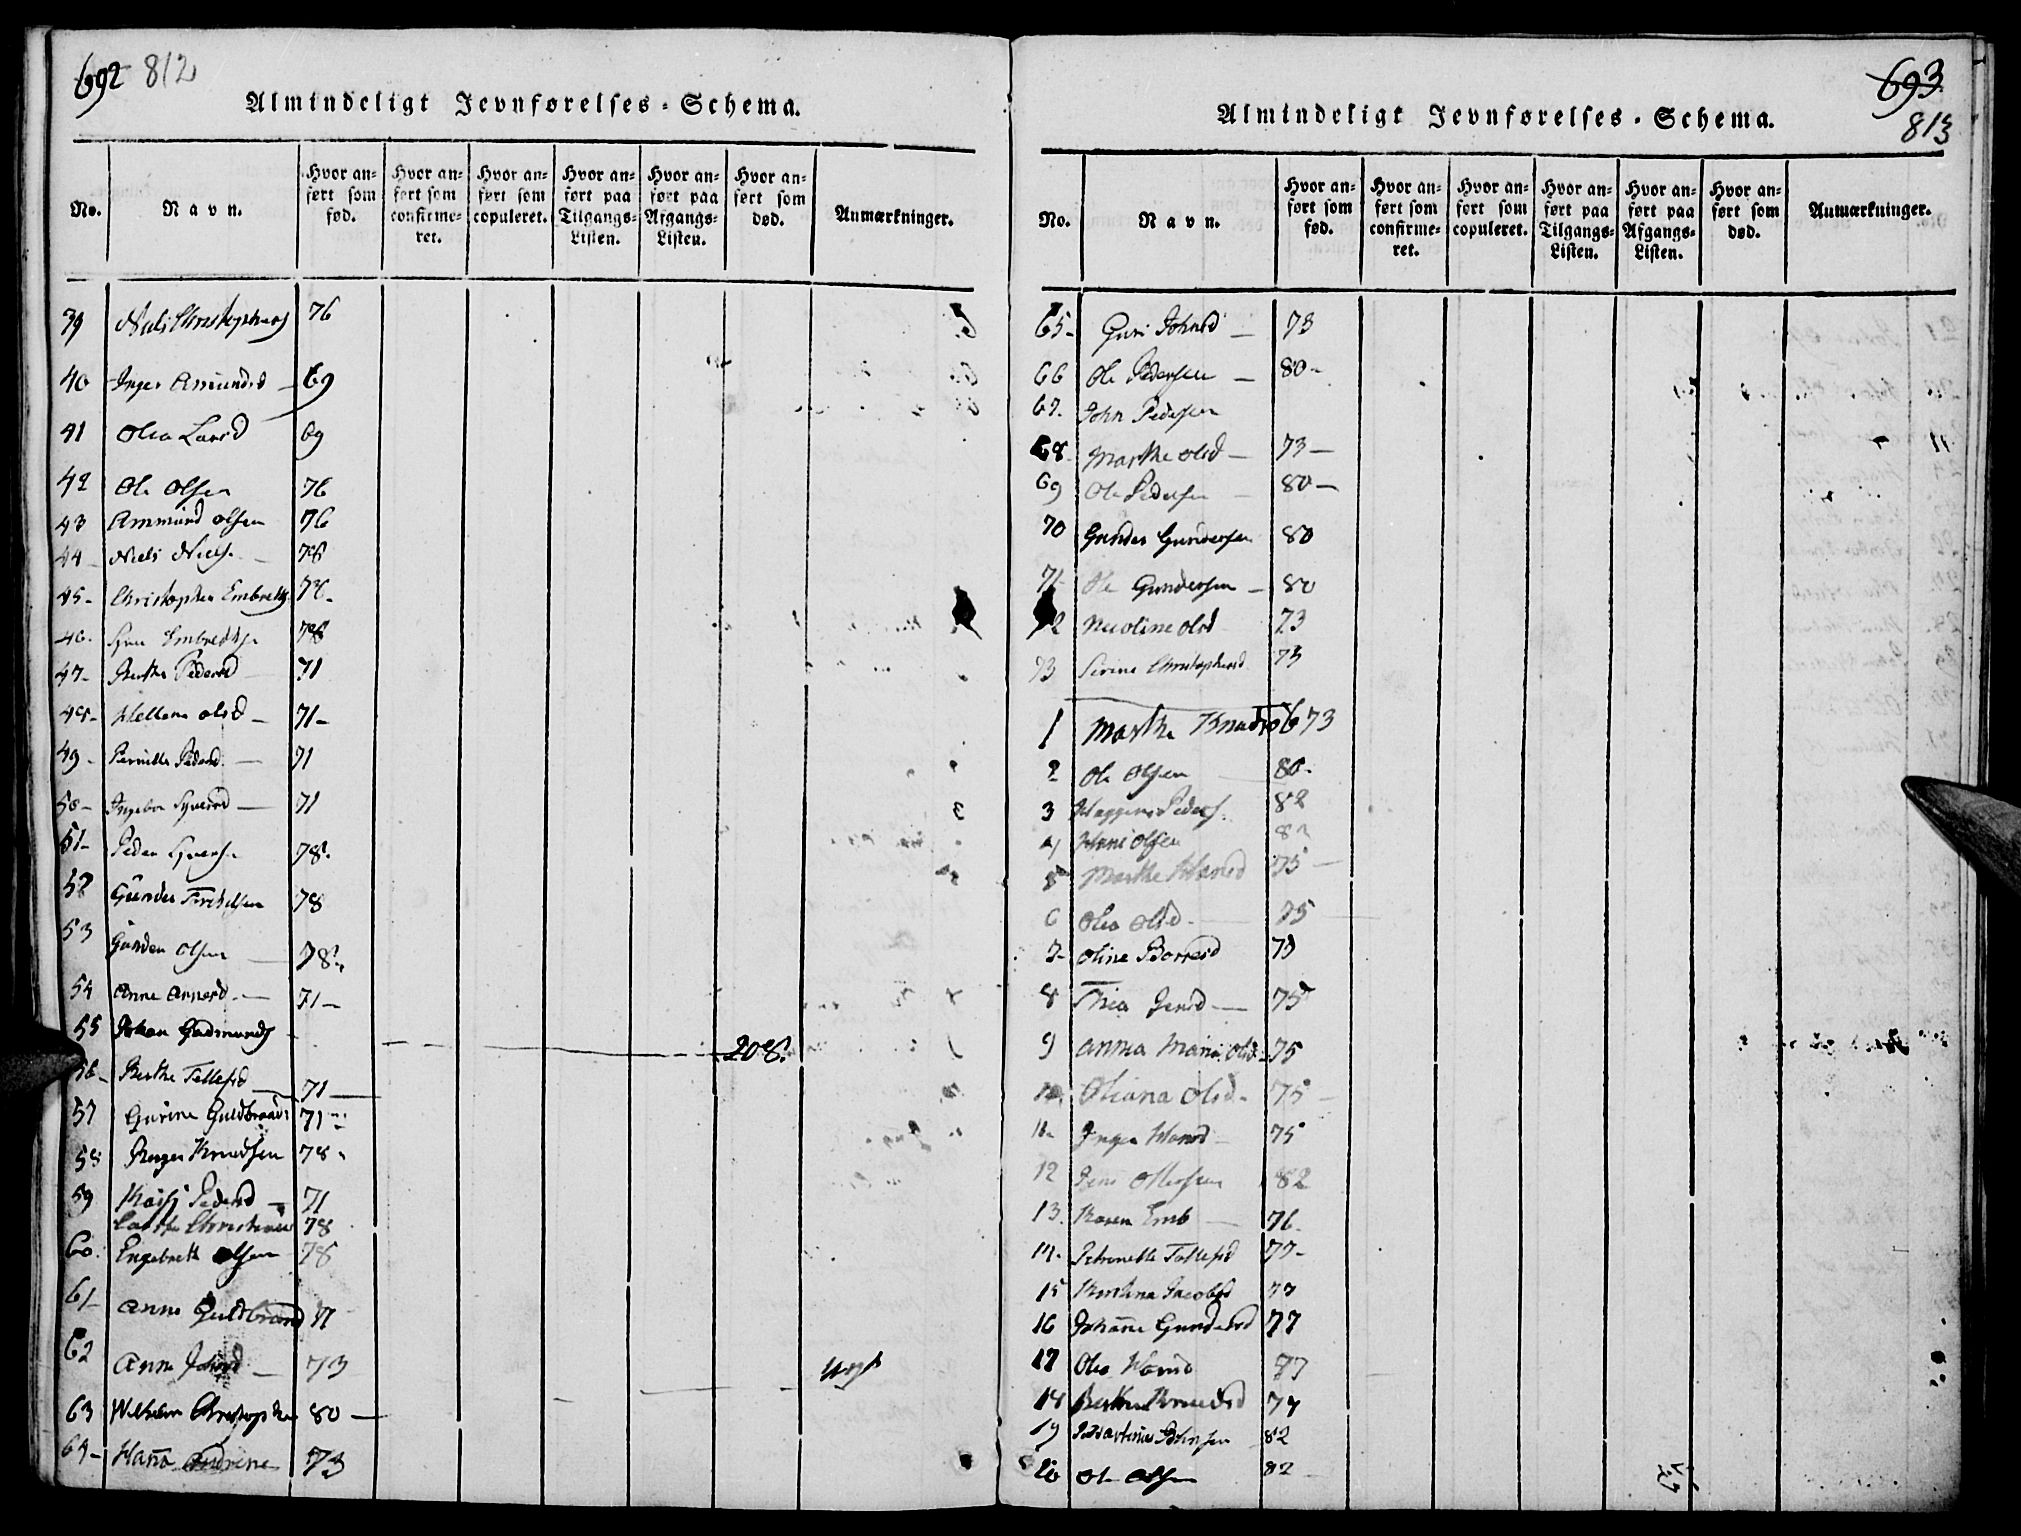 692 812
Almindeligt Jevnførelses-Schema.
No. Navn. Hvor anført som fød. Hvor anført som confirmeret. Hvor anført som copuleret. Hvor anført paa Tilgangs-Listen. Hvor anført paa Afgangs-Listen. Hvor anført som død. Anmærkninger.
39 Niels Christophers 76
40 Inger Amundsd 69
41 Olea Larsd 69
42 Ole Olsen 76
43 Ammund Olsen 76
44 Niels Niels. 78
45- Christopher Embretts. 78-
46. Embredts. 78
47- Berthe Pedersd 71
48- Hellene Olsd 71-
49- Pernille Pedersd. 71
50- Ingebor Syversd 71
51- Peder Syvers. 78.
52 Gunder 78
53 Gunder Olsen 78.
54 Anne Arnesd. 71-
55 Johan Gudmunds 208.
56- Berthe Tollefsd 71
57 Gurine Guldbrands 71
58 Knudsen 78.
59 Pedersd 71
Christians 78
60. Engebrett Olsen 78
61- Anne Guldbrand 71
62 Anne 73
63 Wilhelm Christophe 80
64- Hanna Andrine 73
693
813
Almindeligt Jevnførelses-Schema.
No. Navn. Hvor anført som fød. Hvor anført som confirmeret. Hvor anført som copuleret. Hvor anført paa Tilgangs-Listen. Hvor anført paa Afgangs-Listen. Hvor anført som død. Anmærkninger.
65- Guri Johnsd 73
66 Ole Pedersen 80-
67. John Pedersen
68 Marthe Olsd 73
69 Ole Pedersen 80
70 Gunder Gundersen 80
71- Ole Gundersen 80
2 Nicoline Olsd 73
73 Sirine Christophersd 73
1 Marthe Knuds 673
2 Ole Olsen 80.
3 Peders. 82
4 Hans Olsen 82
5 Marthe Hansd 75
6 Olea Olsd. 75
7- Oline Borresd 75
8 Thea Jensd 75
9 Anna Maria Olsd. 75
10. Oliana Olsd. 75
11- Inger Hansd 75
12 Jens 82
13. Karen Emb 76.
14. Petronelle Tollefsd 77-
15 Jacobsd 77
16 Johanne Gundersd 77
17 Olea Hansd 77
18 Berthe Knudsd 77
19 Martinus Johnsen 82
20 Ole Olsen 82